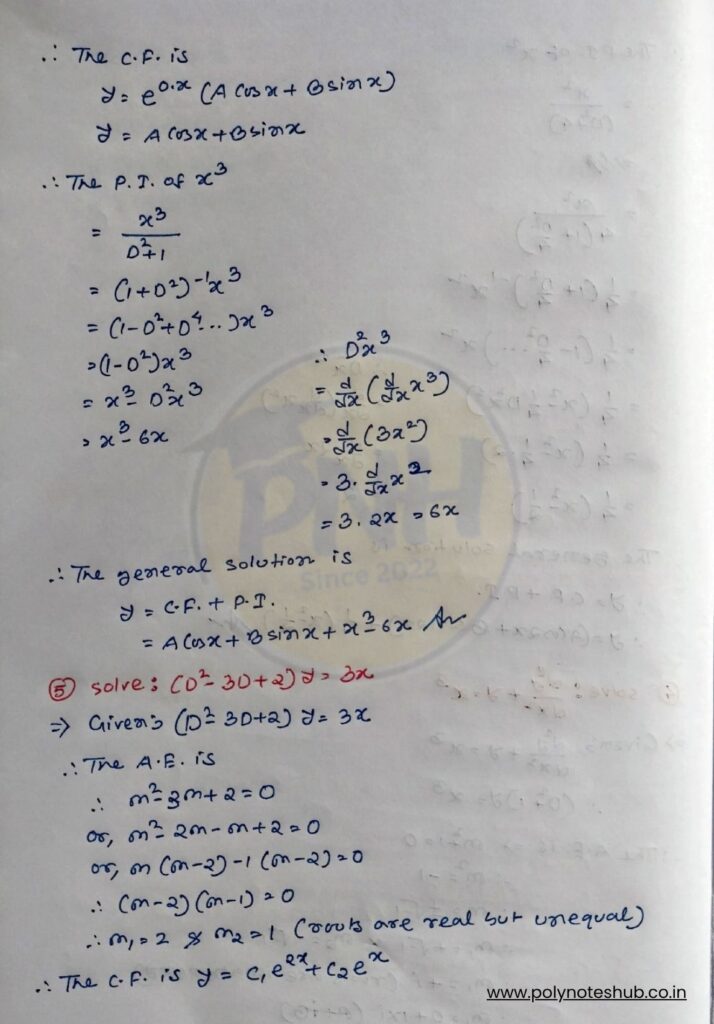 ∴ The C.F. is
y = e^0.x (A cosx + B sinx)
y = A cosx + B sinx
∴ The P.I. of x³
= x³ / D²+1
= (1+D²)⁻¹x³
= (1-D²+D⁴...)x³
= (1-D²)x³
= x³ - D²x³
= x³ - 6x
∴ D²x³
= d/dx (d/dx x³)
= d/dx (3x²)
= 3. d/dx x²
= 3. 2x = 6x
PNH
Since 2022
∴ The general solution is
y = C.F. + P.I.
= A cosx + B sinx + x³ - 6x An
⑤ Solve: (D² - 3D + 2) y = 3x
⇒ Given: (D² - 3D + 2) y = 3x
∴ The A.E. is
∴ m² - 3m + 2 = 0
or, m² - 2m - m + 2 = 0
or, m (m-2) - 1 (m-2) = 0
∴ (m-2) (m-1) = 0
∴ m₁ = 2 & m₂ = 1 (roots are real but unequal)
∴ The C.F. is y = C₁e²ˣ + C₂eˣ
www.polynoteshub.co.in